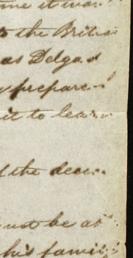 me it was
to the British
as Delgad
prepare
it to learn
the dece
must be at
his famil